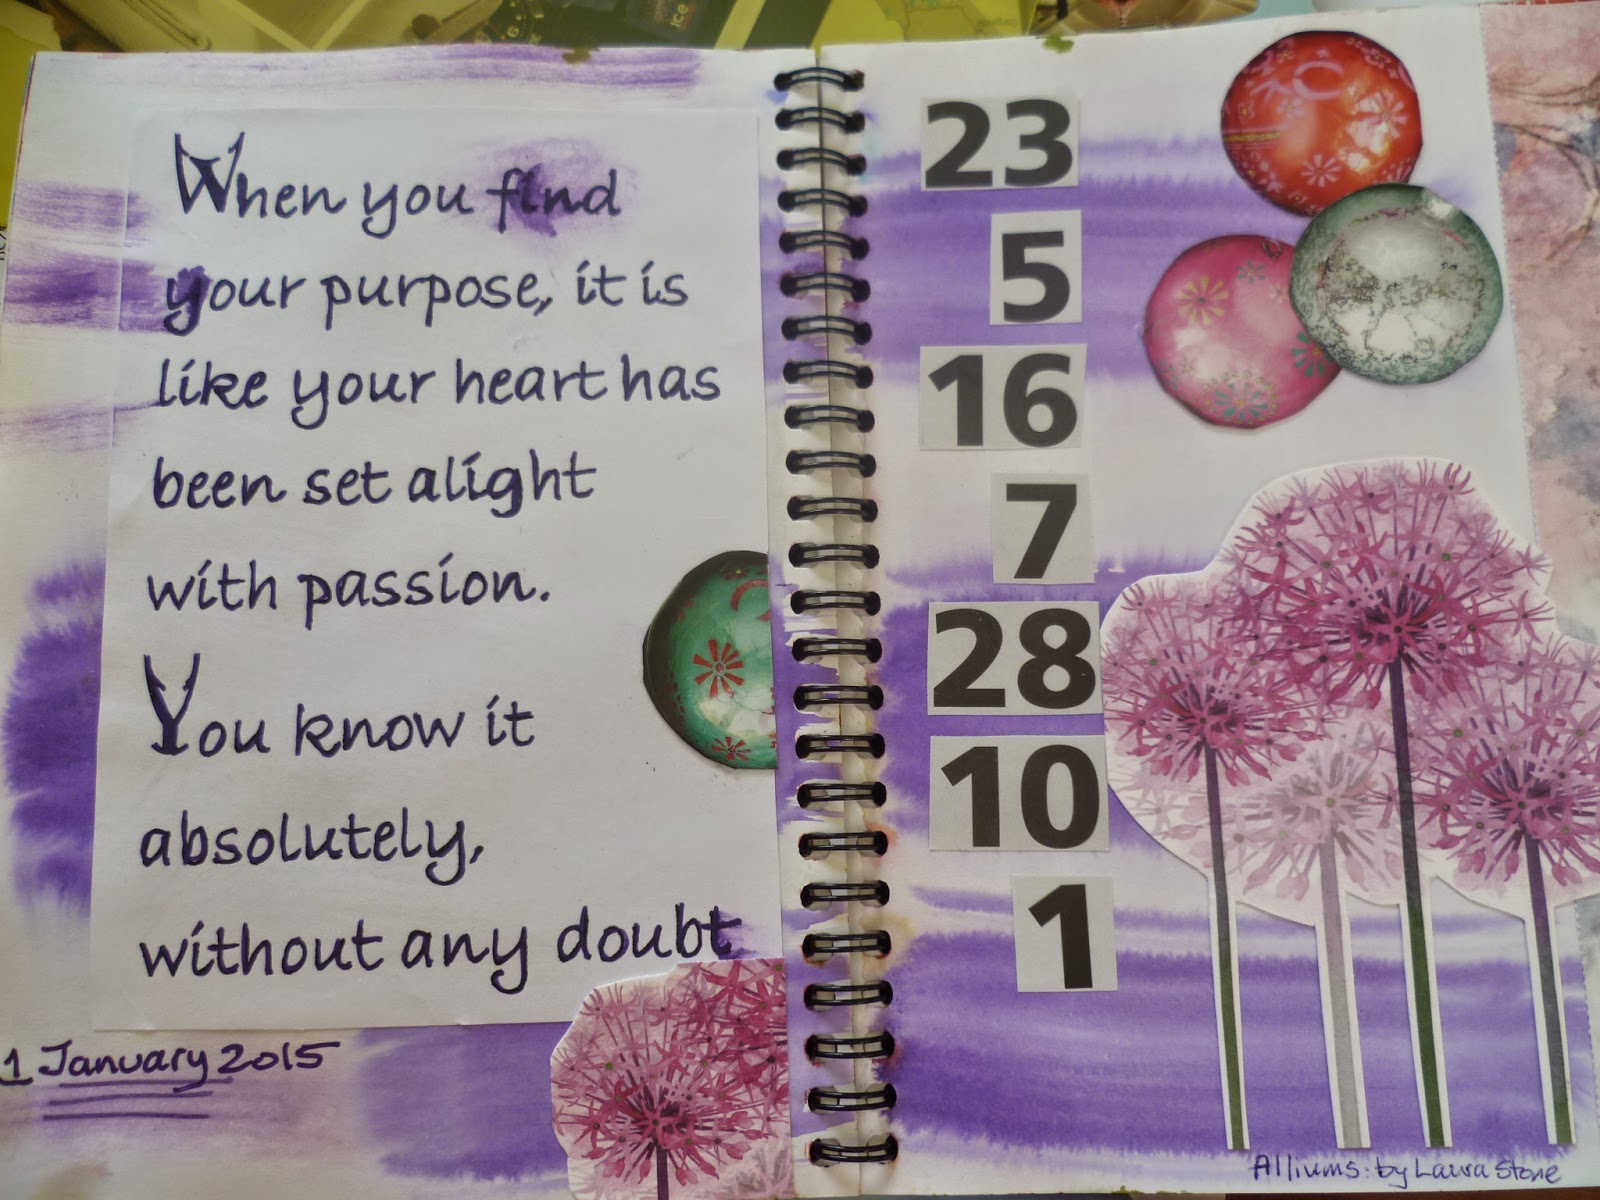 When you find
your purpose, it is
like your heart has
been set alight
with passion.
You know it
absolutely,
without any doubt
1 January 2015
23
5
16
7
28
10
1
Alliums: by Laura Stone